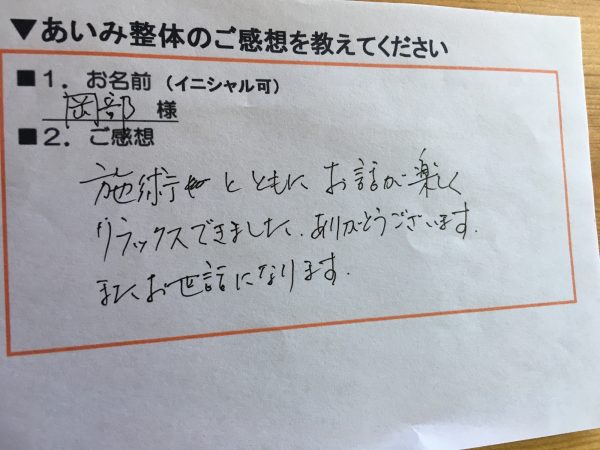 ▼あいみ整体のご感想を教えてください
■1．お名前（イニシャル可）
岡部 様
■2．ご感想
施術とともにお話が楽しく
リラックスできました。ありがとうございます。
またお世話になります。